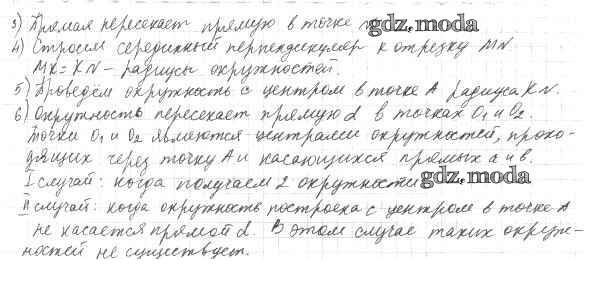 3) Прямая пересекает прямую в точке gdz.moda
4) Строим серединный перпендикуляр к отрезку MN
MK = KN – радиусы окружностей.
5) Проведём окружность с центром в точке A радиуса KN.
6) Окружность пересекает прямую d в точках O₁ и O₂.
Точки O₁ и O₂ являются центрами окружностей, прохо-
дящих через точку A и касающихся прямых a и b.
I случай: когда получаем 2 окружности gdz.moda
II случай: когда окружность построена с центром в точке A
не касается прямой d. В этом случае таких окруж-
ностей не существует.